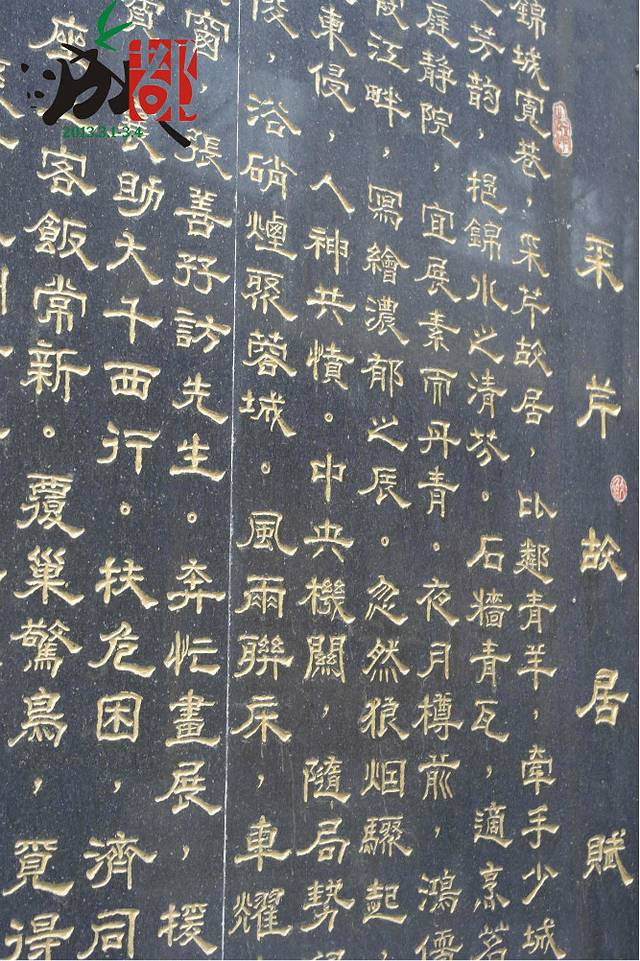 采芹故居賦
錦城寬巷，采芹故居，比鄰青羊，牽手少城
芳韵，挹錦水之清芬。石牆青瓦，適烹茗
庭靜院，宜展素而丹青。夜月樽前，鴻儒
江畔，寫繪濃郁之辰。忽然狼烟驟起，
東侵，人神共憤。中央機關，隨局勢
陵，浴硝煙聚蓉城。風雨聯床，車耀
窗，張善孖訪先生。奔忙畫展，援
助大千西行。扶危困，濟同
座，客飯常新。覆巢驚鳥，覓得
都
2013.3.1-3.4